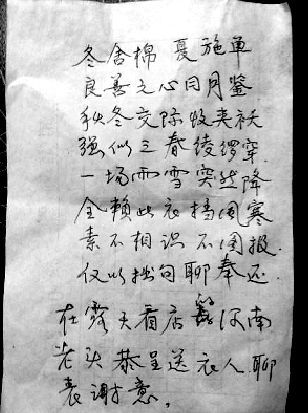 冬舍棉 夏施单
良善之心日月鉴
秋冬交际收夹袄
强似三春绫穿
一场雨雪突然降
全赖此衣挡风寒
素不相识不图报
仅以拙句聊奉还
在露天看店河南
老头恭呈送衣人聊
表谢意。